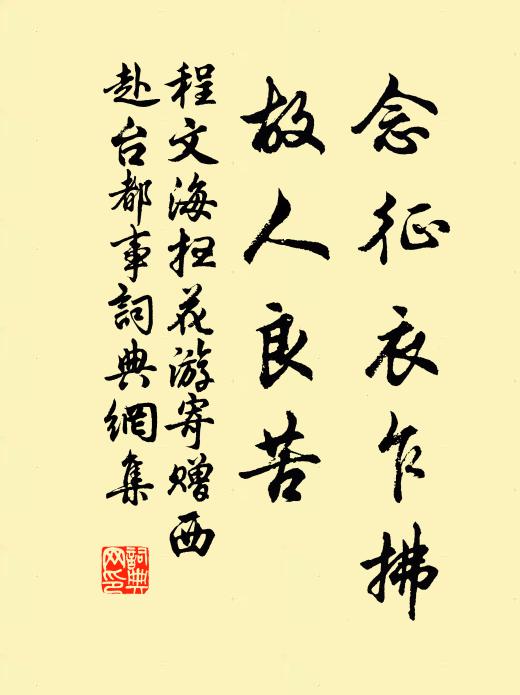 念征衣乍拂
故人良苦
程文海扫花游寄赠西
赴台都事詞典網集
詞典网印